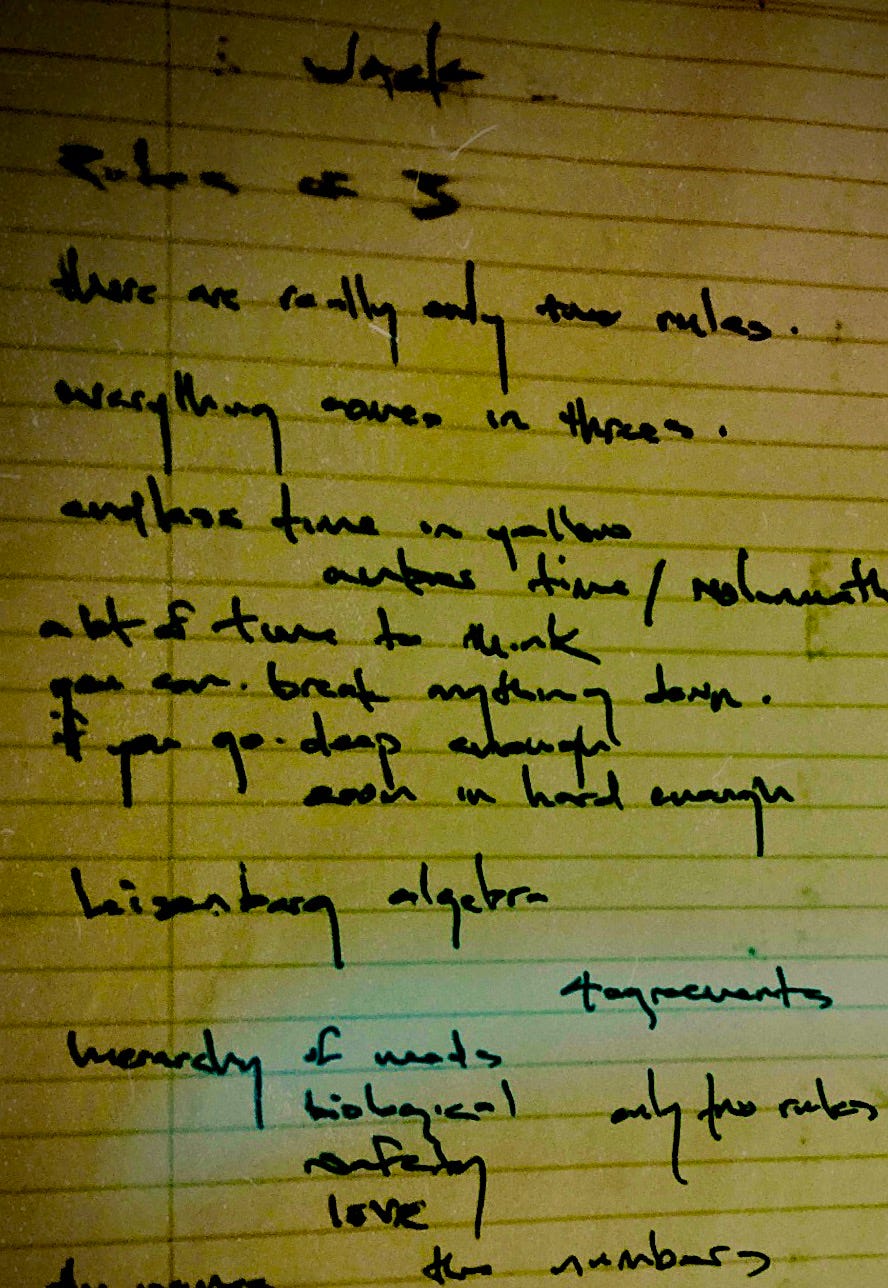 : Jack
Rules of 3
there are really only two rules.
everything comes in threes.
endless time in yellow
time /
a lot of time to think
you can. break anything down.
if you go. deep enough
zoom in hard enough
heisenberg algebra
4 agreements
hierarchy of needs
biological only two rules
love
the numbers